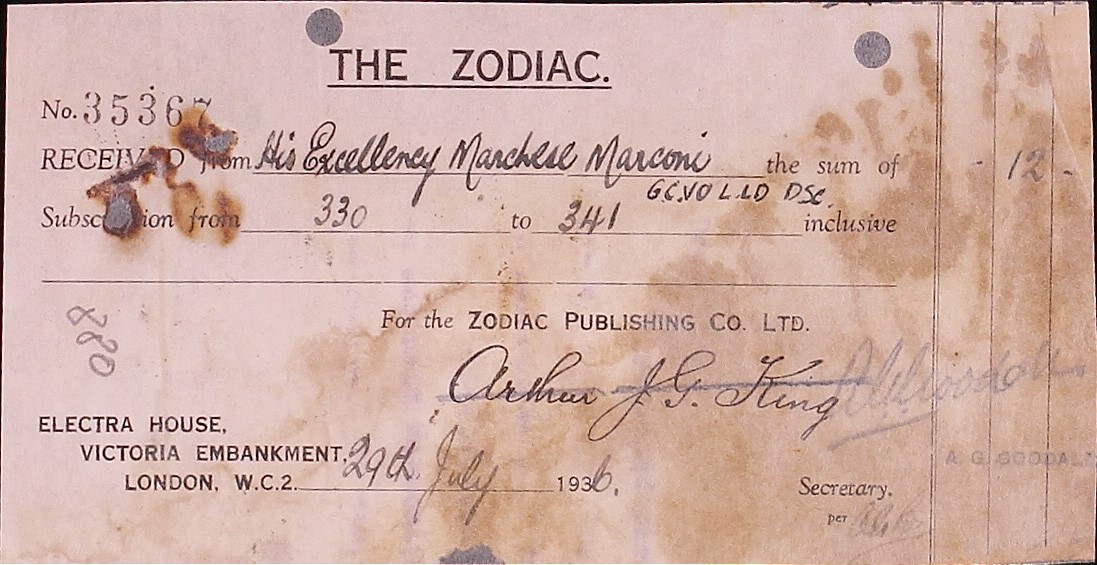 THE ZODIAC.
No. 35367
RECEIVED from His Excellency Marchese Marconi the sum of - 12 -
G.C.V.O L.L.D DSc.
Subscription from 330 to 341 inclusive
880
For the ZODIAC PUBLISHING CO. LTD.
Arthur J. G. King
ELECTRA HOUSE,
VICTORIA EMBANKMENT,
LONDON, W.C.2. 29th July 1936.
A G GOODALL
Secretary.
per